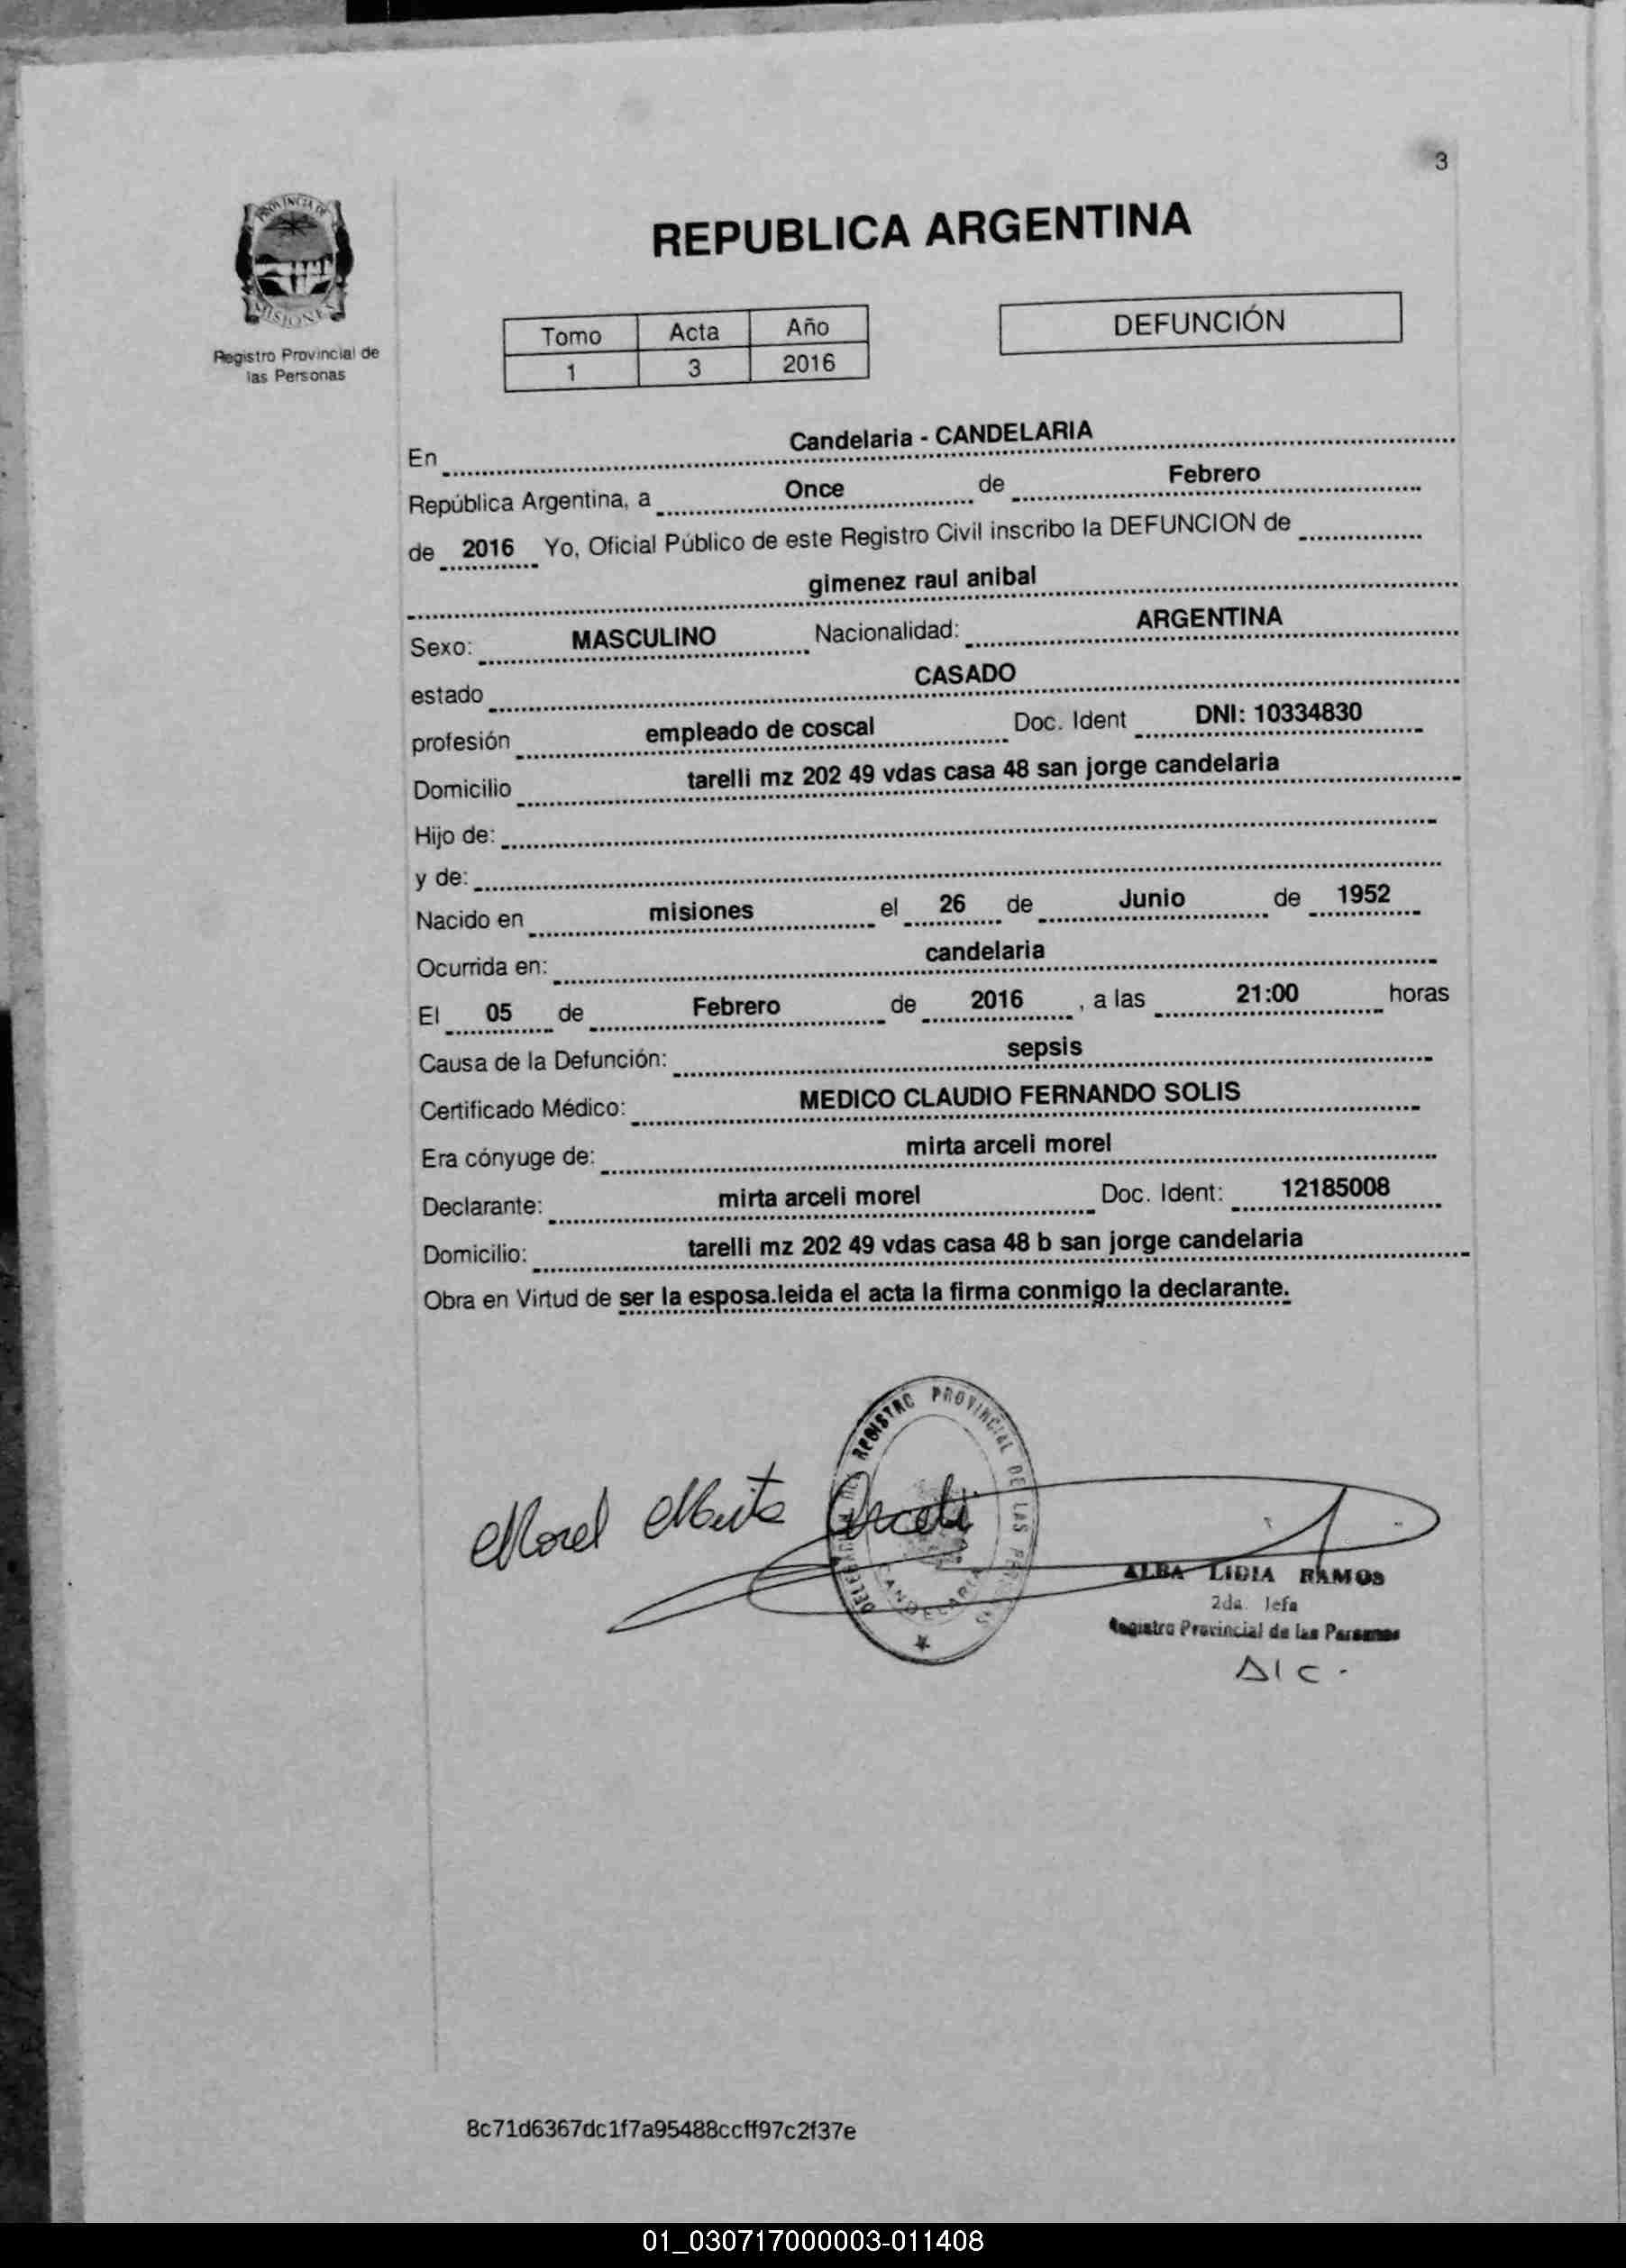 3
PROVINCIA DE
MISIONES
Registro Provincial de
las Personas
REPUBLICA ARGENTINA
Tomo Acta Año
1 3 2016
DEFUNCIÓN
En Candelaria - CANDELARIA
República Argentina, a Once de Febrero
de 2016 Yo, Oficial Público de este Registro Civil inscribo la DEFUNCION de
gimenez raul anibal
Sexo: MASCULINO Nacionalidad: ARGENTINA
estado CASADO
profesión empleado de coscal Doc. Ident DNI: 10334830
Domicilio tarelli mz 202 49 vdas casa 48 san jorge candelaria
Hijo de:
y de:
Nacido en misiones el 26 de Junio de 1952
Ocurrida en: candelaria
El 05 de Febrero de 2016 , a las 21:00 horas
Causa de la Defunción: sepsis
Certificado Médico: MEDICO CLAUDIO FERNANDO SOLIS
Era cónyuge de: mirta arceli morel
Declarante: mirta arceli morel Doc. Ident: 12185008
Domicilio: tarelli mz 202 49 vdas casa 48 b san jorge candelaria
Obra en Virtud de ser la esposa.leida el acta la firma conmigo la declarante.
REGISTRO PROVINCIAL DE LAS
CANDELARIA
Morel Mirta Arceli
ALBA LIDIA RAMOS
2da. Jefa
Registro Provincial de las Personas
A/C.
8c71d6367dc1f7a95488ccff97c2f37e
01_030717000003-011408